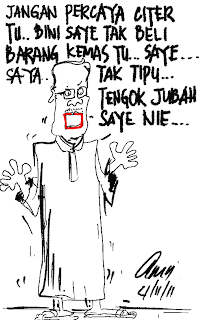 JANGAN PERCAYA CITER
TU... BINI SAYE TAK BELI
BARANG KEMAS TU... SAYE....
SA-YA... TAK TIPU...
TENGOK JUBAH
SAYE NIE....
4/11/11